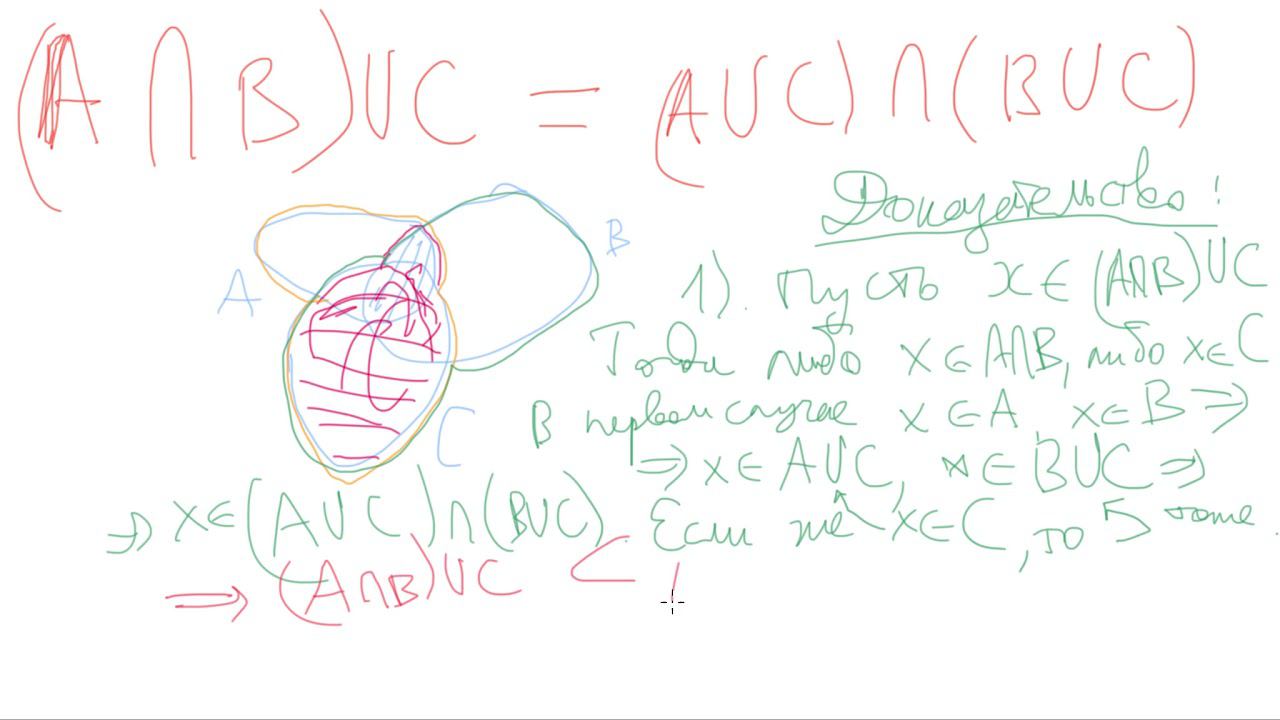 (A ∩ B) ∪ C = (A ∪ C) ∩ (B ∪ C)
Доказательство!
A
B
C
1). Пусть x ∈ (A∩B) ∪ C
Тогда либо x ∈ A∩B, либо x ∈ C
В первом случае x ∈ A, x ∈ B ⇒
⇒ x ∈ A∪C, x ∈ B∪C ⇒
⇒ x ∈ (A∪C) ∩ (B∪C). Если же x ∈ C, то тоже
⇒ (A∩B) ∪ C ⊂